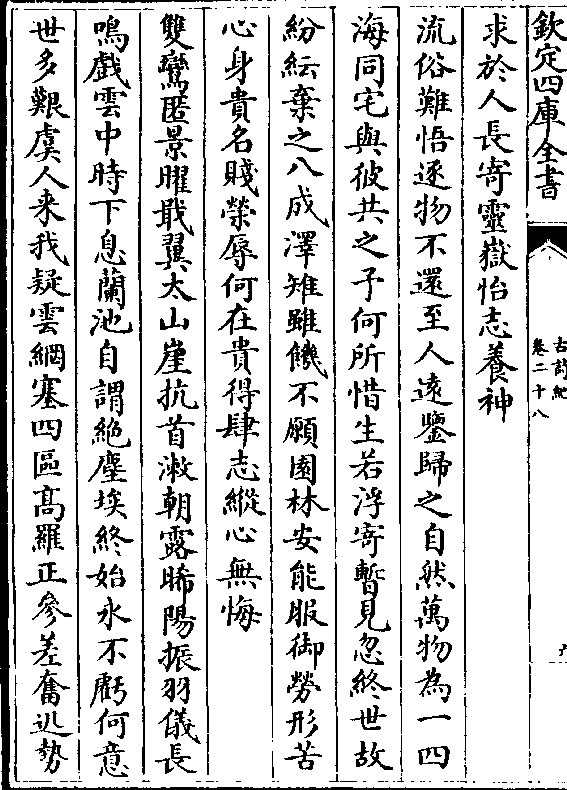 欽定四庫全書
古詩紀
卷二十八
求於人長寄靈嶽怡志養神
流俗難悟逐物不還至人遠鑒歸之自然萬物為一四
海同宅與彼共之予何所惜生若浮寄暫見忽終世故
紛紜棄之八成澤雉雖饑不願園林安能服御勞形苦
心身貴名賤榮辱何在貴得肆志縱心無悔
雙鸞匿景曜戢翼太山崖抗首漱朝露晞陽振羽儀長
鳴戲雲中時下息蘭池自謂絶塵埃終始永不虧何意
世多艱虞人来我疑雲網塞四區髙羅正參差奮迅勢